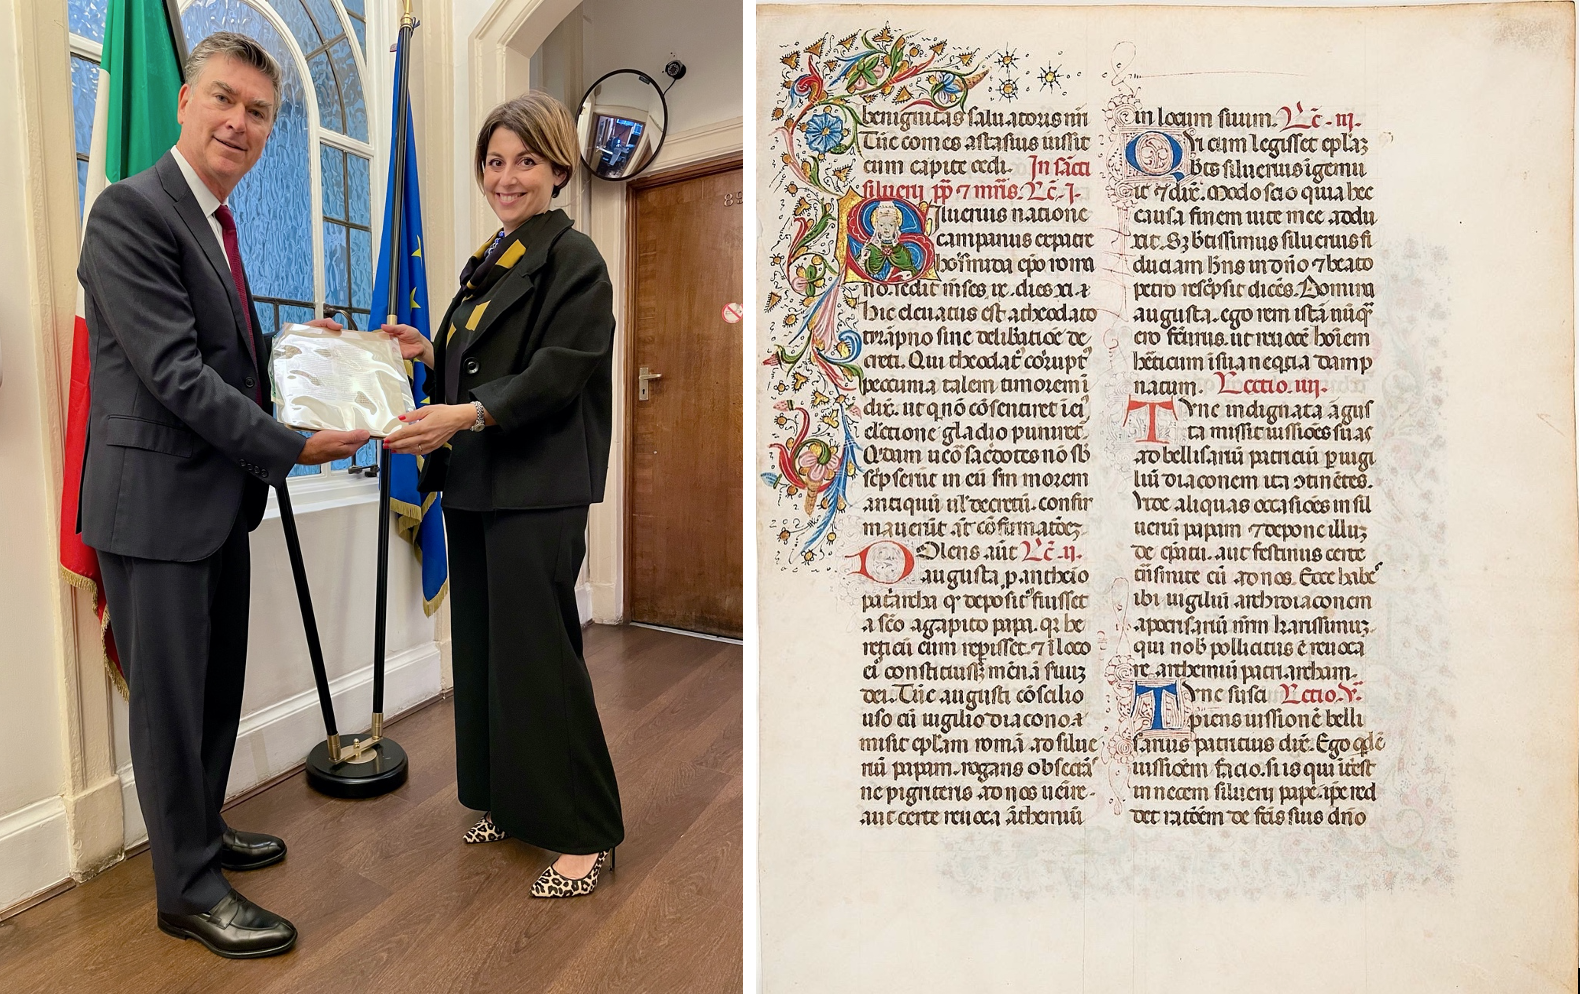 89
benignitas saluatoris nri
Tūc comes astasius iussit
eum capite cedi. In sācti
siluerij pp ⁊ mris. Lc̄. I.
Siluerius natione
campanus ex patre
hormisda ep̄o roma
no. sedit mēses ix. dies xi.
hic eleuatus est a theodato
tirāpno sine delibatiōe de
creti. Qui theodat' corupt'
peccunia talem timorem ī
dix. ut q nō cōsentiret ī ei'
electione gladio puniret.
Qdam u'o sac'dotes nō sb
sc'pserūt in eū sm morem
antiquū ul' decretū. confir
mauerūt
Dolens aūt Lc̄. ii.
augusta p antheio
pat'archa q' deposit' fuisset
a scō agapito papa. q' he
reticū eum reperisset. ⁊ ī loco
ei' constituisset mēnā suuz
dei. Tūc augusti cōsilio
uso cū uigilio diacono
misit ep̄lam romā ad silue
riū papam. rogans
ne pigriteris ad nos ueire.
aut certe reuoca āthemiū
in locum suum. Lc̄. iij.
Qvi cum legisset ep̄laz
btūs siluerius īgemu
it ⁊ dix. Modo scio quia hec
causa finem uite mee addu
xit. Sz btissimus siluerius fi
duciam hns in dn̄o ⁊ beato
petro rescpsit dicēs. Domina
augusta. ego rem istā nūq
ero fcūrus. ut reuocē hoīem
hēticum ī sua neqtia damp
natum. Lectio. iiij.
Tvnc indignata āgus
ta misit iussiōes suas
ad bellisariū patriciū p uigi
liū diaconem ita ɔtinētes.
Vide aliquas occasiōes in sil
ueriū papam ⁊ depone illuz
de ep̄atu. aut festinus certe
ad nos. Ecce habes
ibi uigiliū archidiaconem
apocrisariū nrm karissimuz.
qui nob' pollicitus ē reuoca
re. anthemiū patriarcham.
Tvnc susci Lectio. V.
piens iussionē belli
sarius patricius dix. Ego qdē
iussiōem facio. si is qui īt'est
in necem siluerij pape. ipe red
det ratōem de fcis suis dn̄o